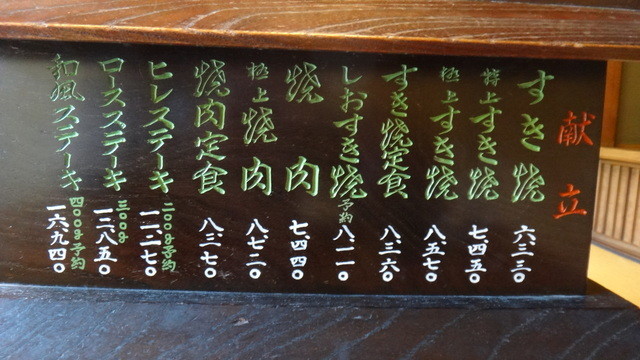 献立
すき焼 六.三三〇
特上すき焼 七.四五〇
極上すき焼 八.五七〇
すき焼定食 八.三六〇
しおすき焼 予約 八.一一〇
焼肉 七.四四〇
極上焼肉 八.七二〇
焼肉定食 八.三七〇
ヒレステーキ 二〇〇g予約 一一.二七〇
ロースステーキ 三〇〇g 一二.八五〇
和風ステーキ 四〇〇g予約 一六.九四〇